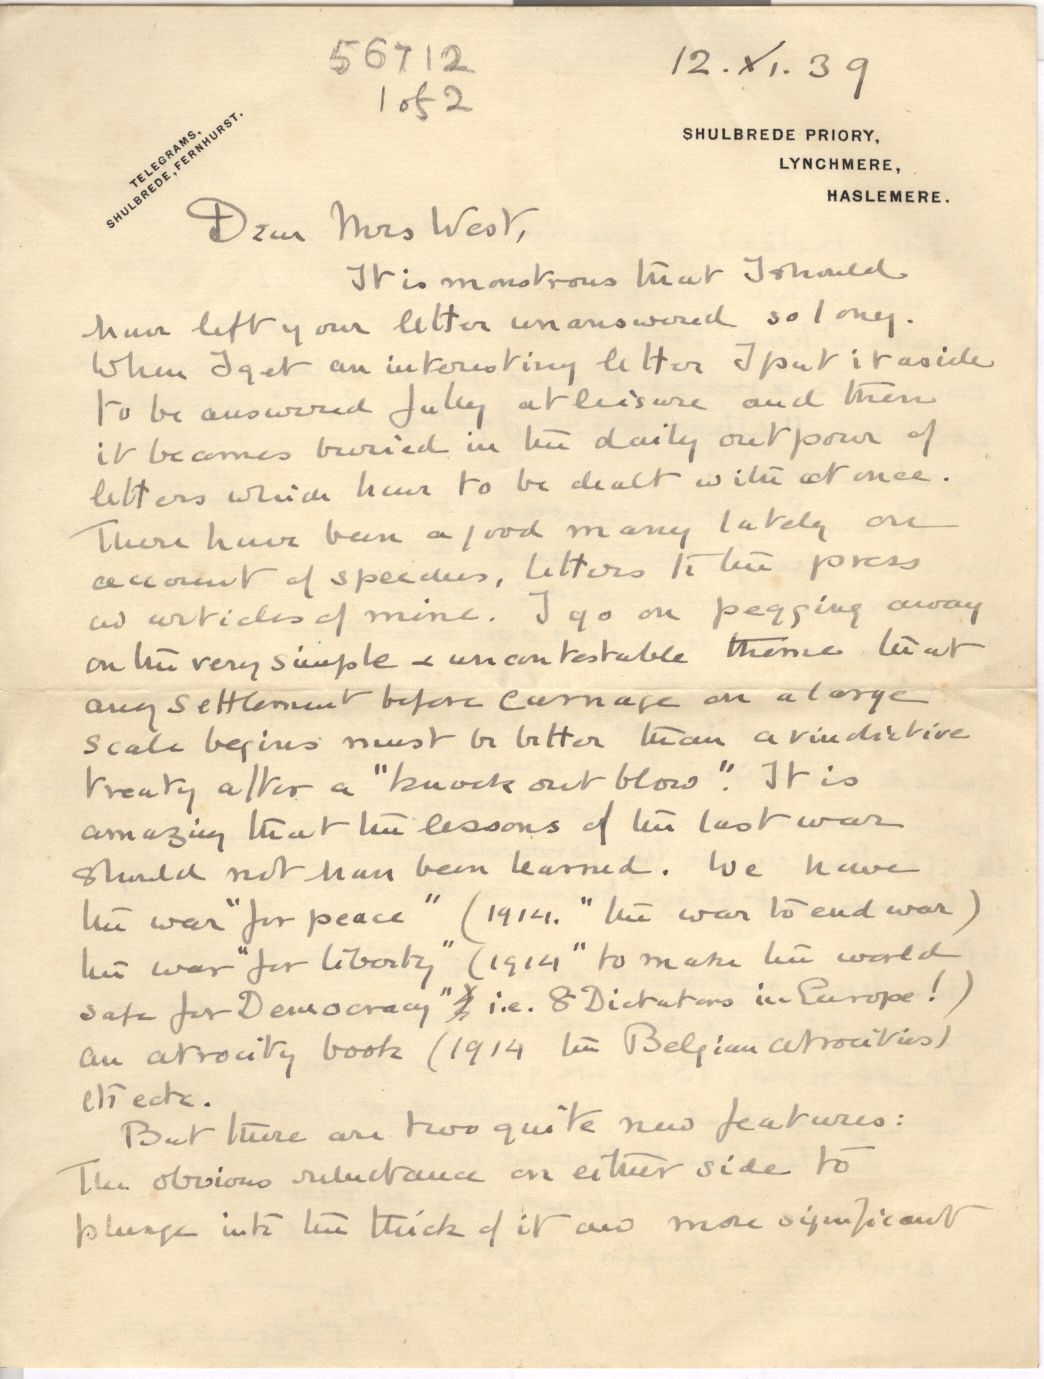 56712
1 of 2
12. XI. 39
TELEGRAMS,
SHULBREDE, FERNHURST.
SHULBREDE PRIORY,
LYNCHMERE,
HASLEMERE.
Dear Mrs West,
It is monstrous that I should
have left your letter unanswered so long.
When I get an interesting letter I put it aside
to be answered fully at leisure and then
it becomes buried in the daily outpour of
letters which have to be dealt with at once.
There have been a good many lately on
account of speeches, letters to the press
and articles of mine. I go on pegging away
on the very simple & uncontestable theme that
any settlement before carnage on a large
scale begins must be better than a vindictive
treaty after a "knock out blow". It is
amazing that the lessons of the last war
should not have been learned. We have
the war "for peace" (1914. "the war to end war)
the war "for liberty" (1914 "to make the world
safe for Democracy" i.e. 8 Dictators in Europe!)
an atrocity book (1914 the Belgian atrocities)
etc etc.
But there are two quite new features:
The obvious reluctance on either side to
plunge into the thick of it and more significant